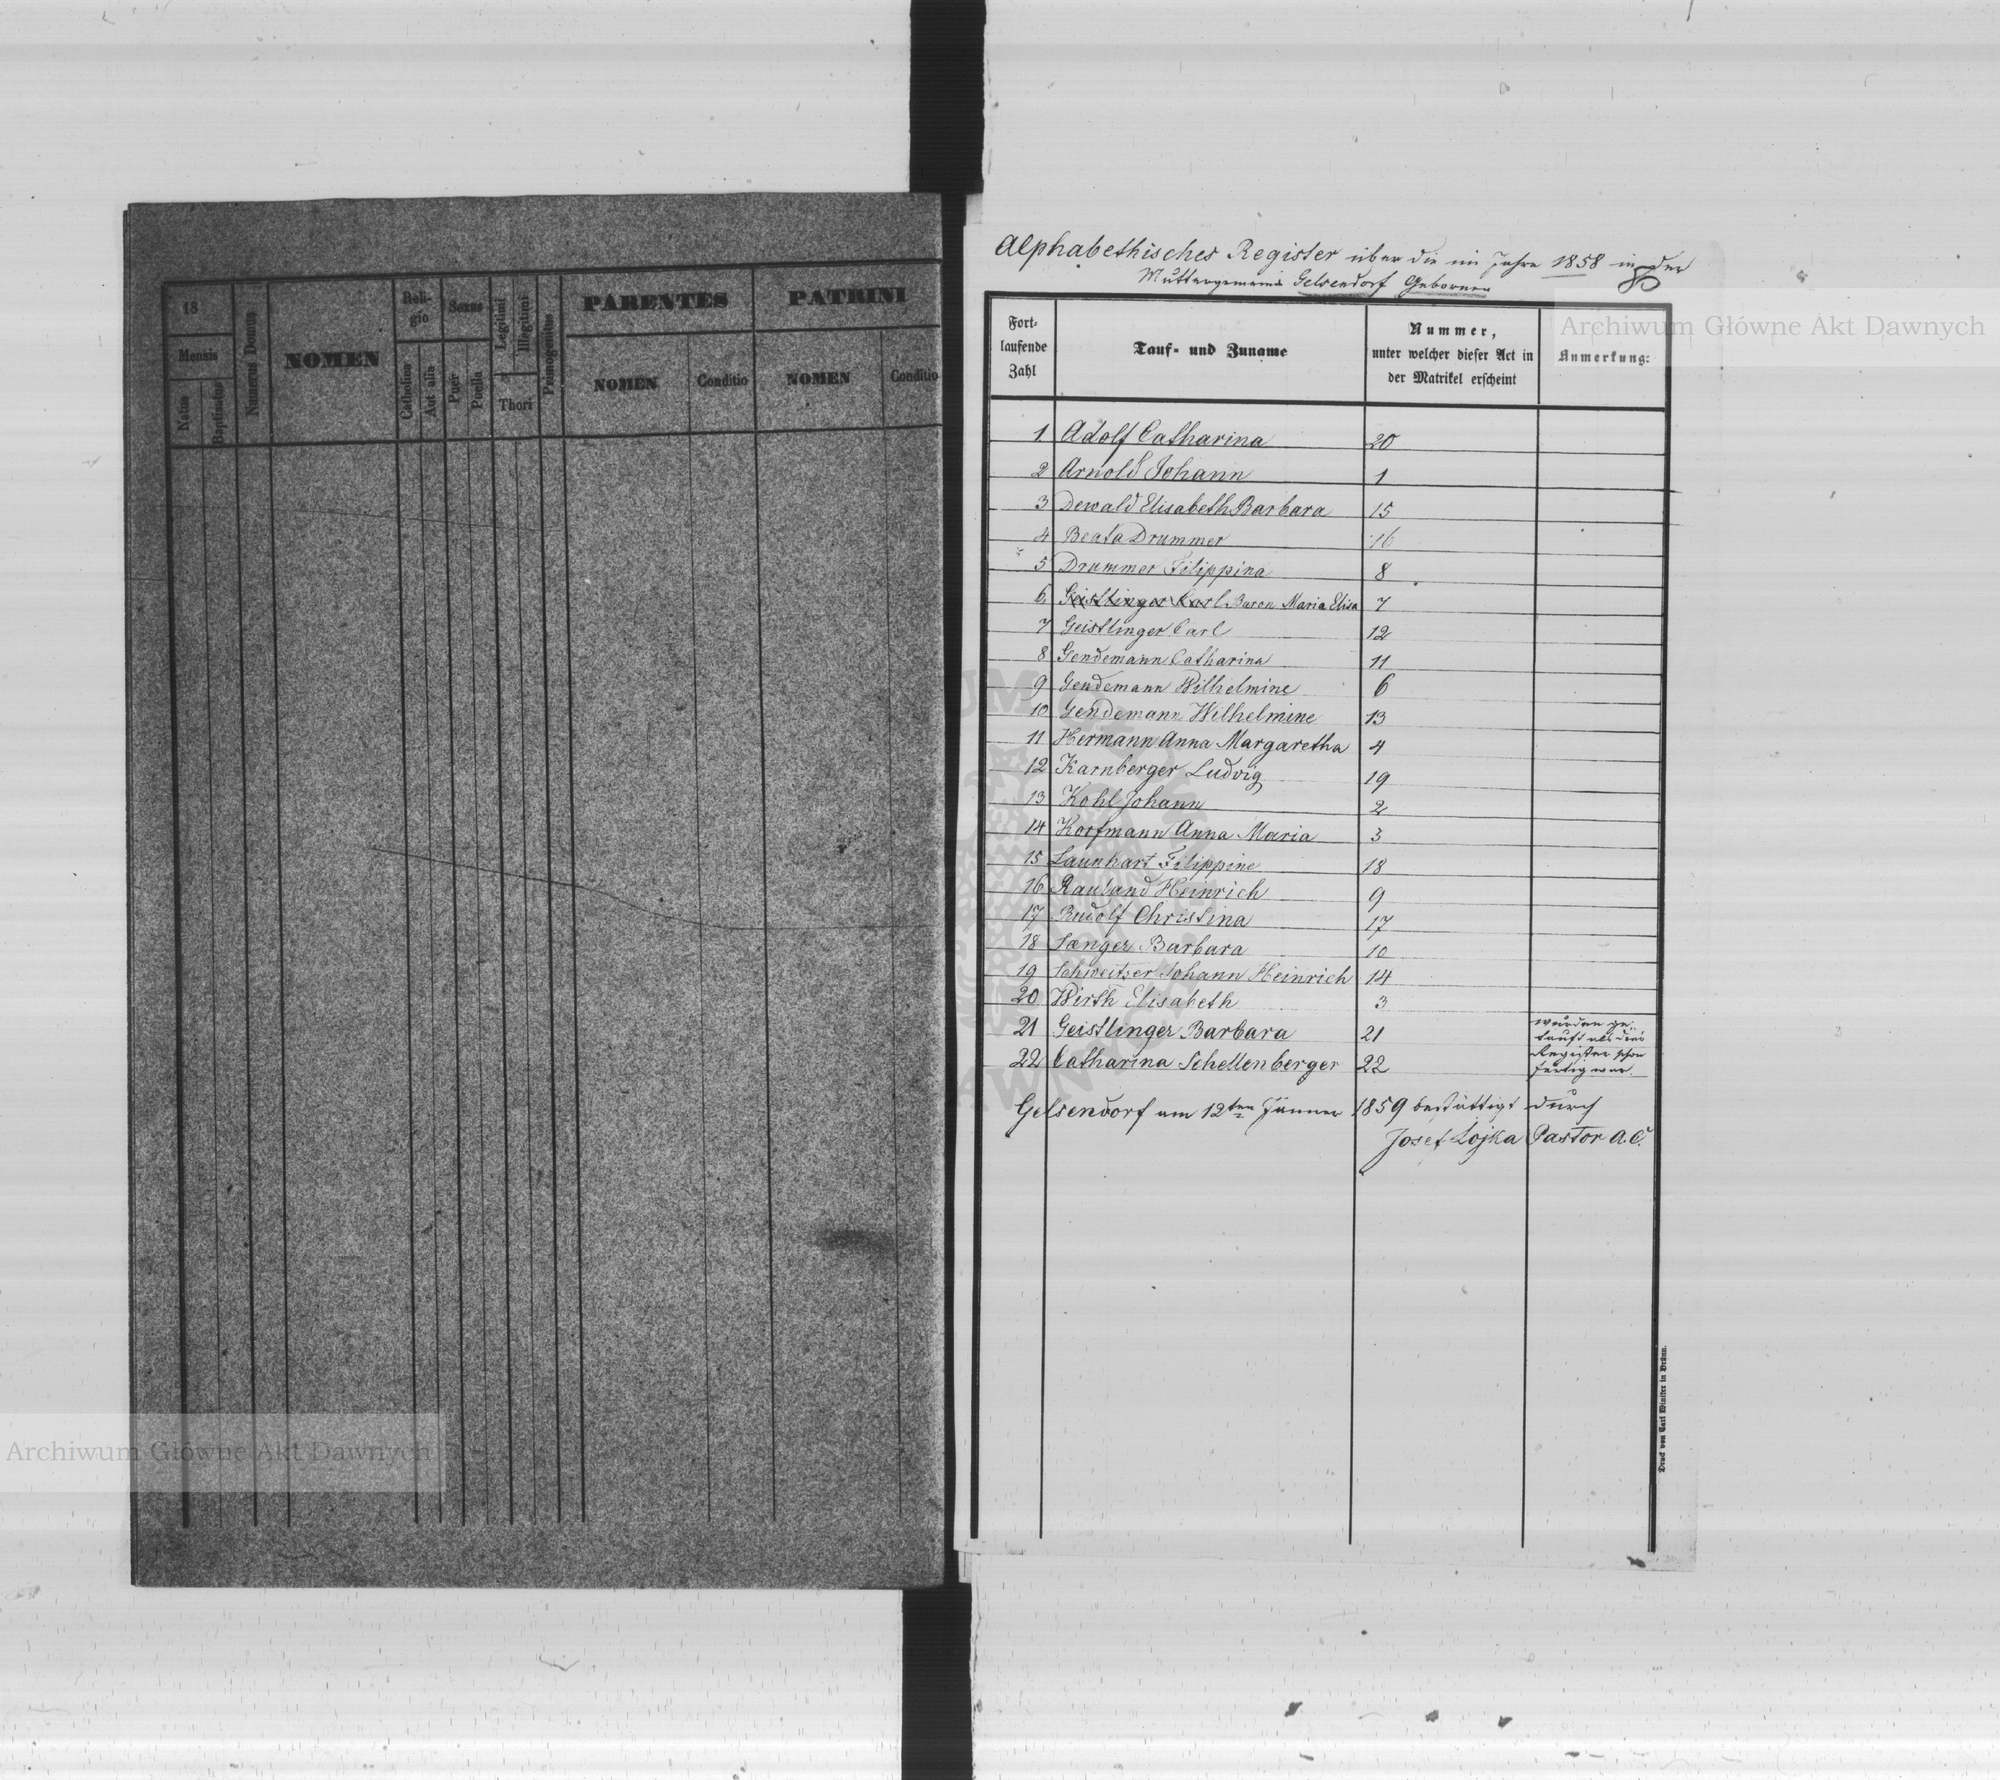 18
Mensis
Natus
Baptisatus
Numerus Domus
NOMEN
Reli-
gio
Catholica
Aut alia
Sexus
Puer
Puella
Legitimi
Illegitimi
Thori
Primogenitus
PARENTES
NOMEN
Conditio
PATRINI
NOMEN
Conditio
Alphabethisches Register über die im Jahre 1858 in der
Muttergemeine Gelsendorf Gebornen
Fort-
laufende
Zahl
Tauf- und Zuname
Nummer,
unter welcher dieser Act in
der Matrikel erscheint
Anmerkung:
1 Adolf Catharina 20
2 Arnold Johann 1
3 Dewald Elisabeth Barbara 15
4 Beata Drummer 16
5 Drummer Filippina 8
6 Geistlinger Carl Baron Maria Elisa 7
7 Geistlinger Carl 12
8 Gendemann Catharina 11
9 Gendemann Wilhelmine 6
10 Gendemann Wilhelmine 13
11 Hermann Anna Margaretha 4
12 Karnberger Ludvig 19
13 Kohl Johann 2
14 Korfmann Anna Maria 3
15 Launhart Filippine 18
16 Rauland Heinrich 9
17 Rudolf Christina 17
18 Sænger Barbara 10
19 Schweitzer Johann Heinrich 14
20 Wirth Elisabeth 3
21 Geistlinger Barbara 21
22 Catharina Schellenberger 22
wurden ge-
tauft als dies
Register schon
fertig war.
Gelsendorf am 12ten Jänner 1859 bestättigt durch
Josef Lojka Pastor A.C.
Druck von Carl Winiker in Brünn.
Archiwum Główne Akt Dawnych
Archiwum Główne Akt Dawnych